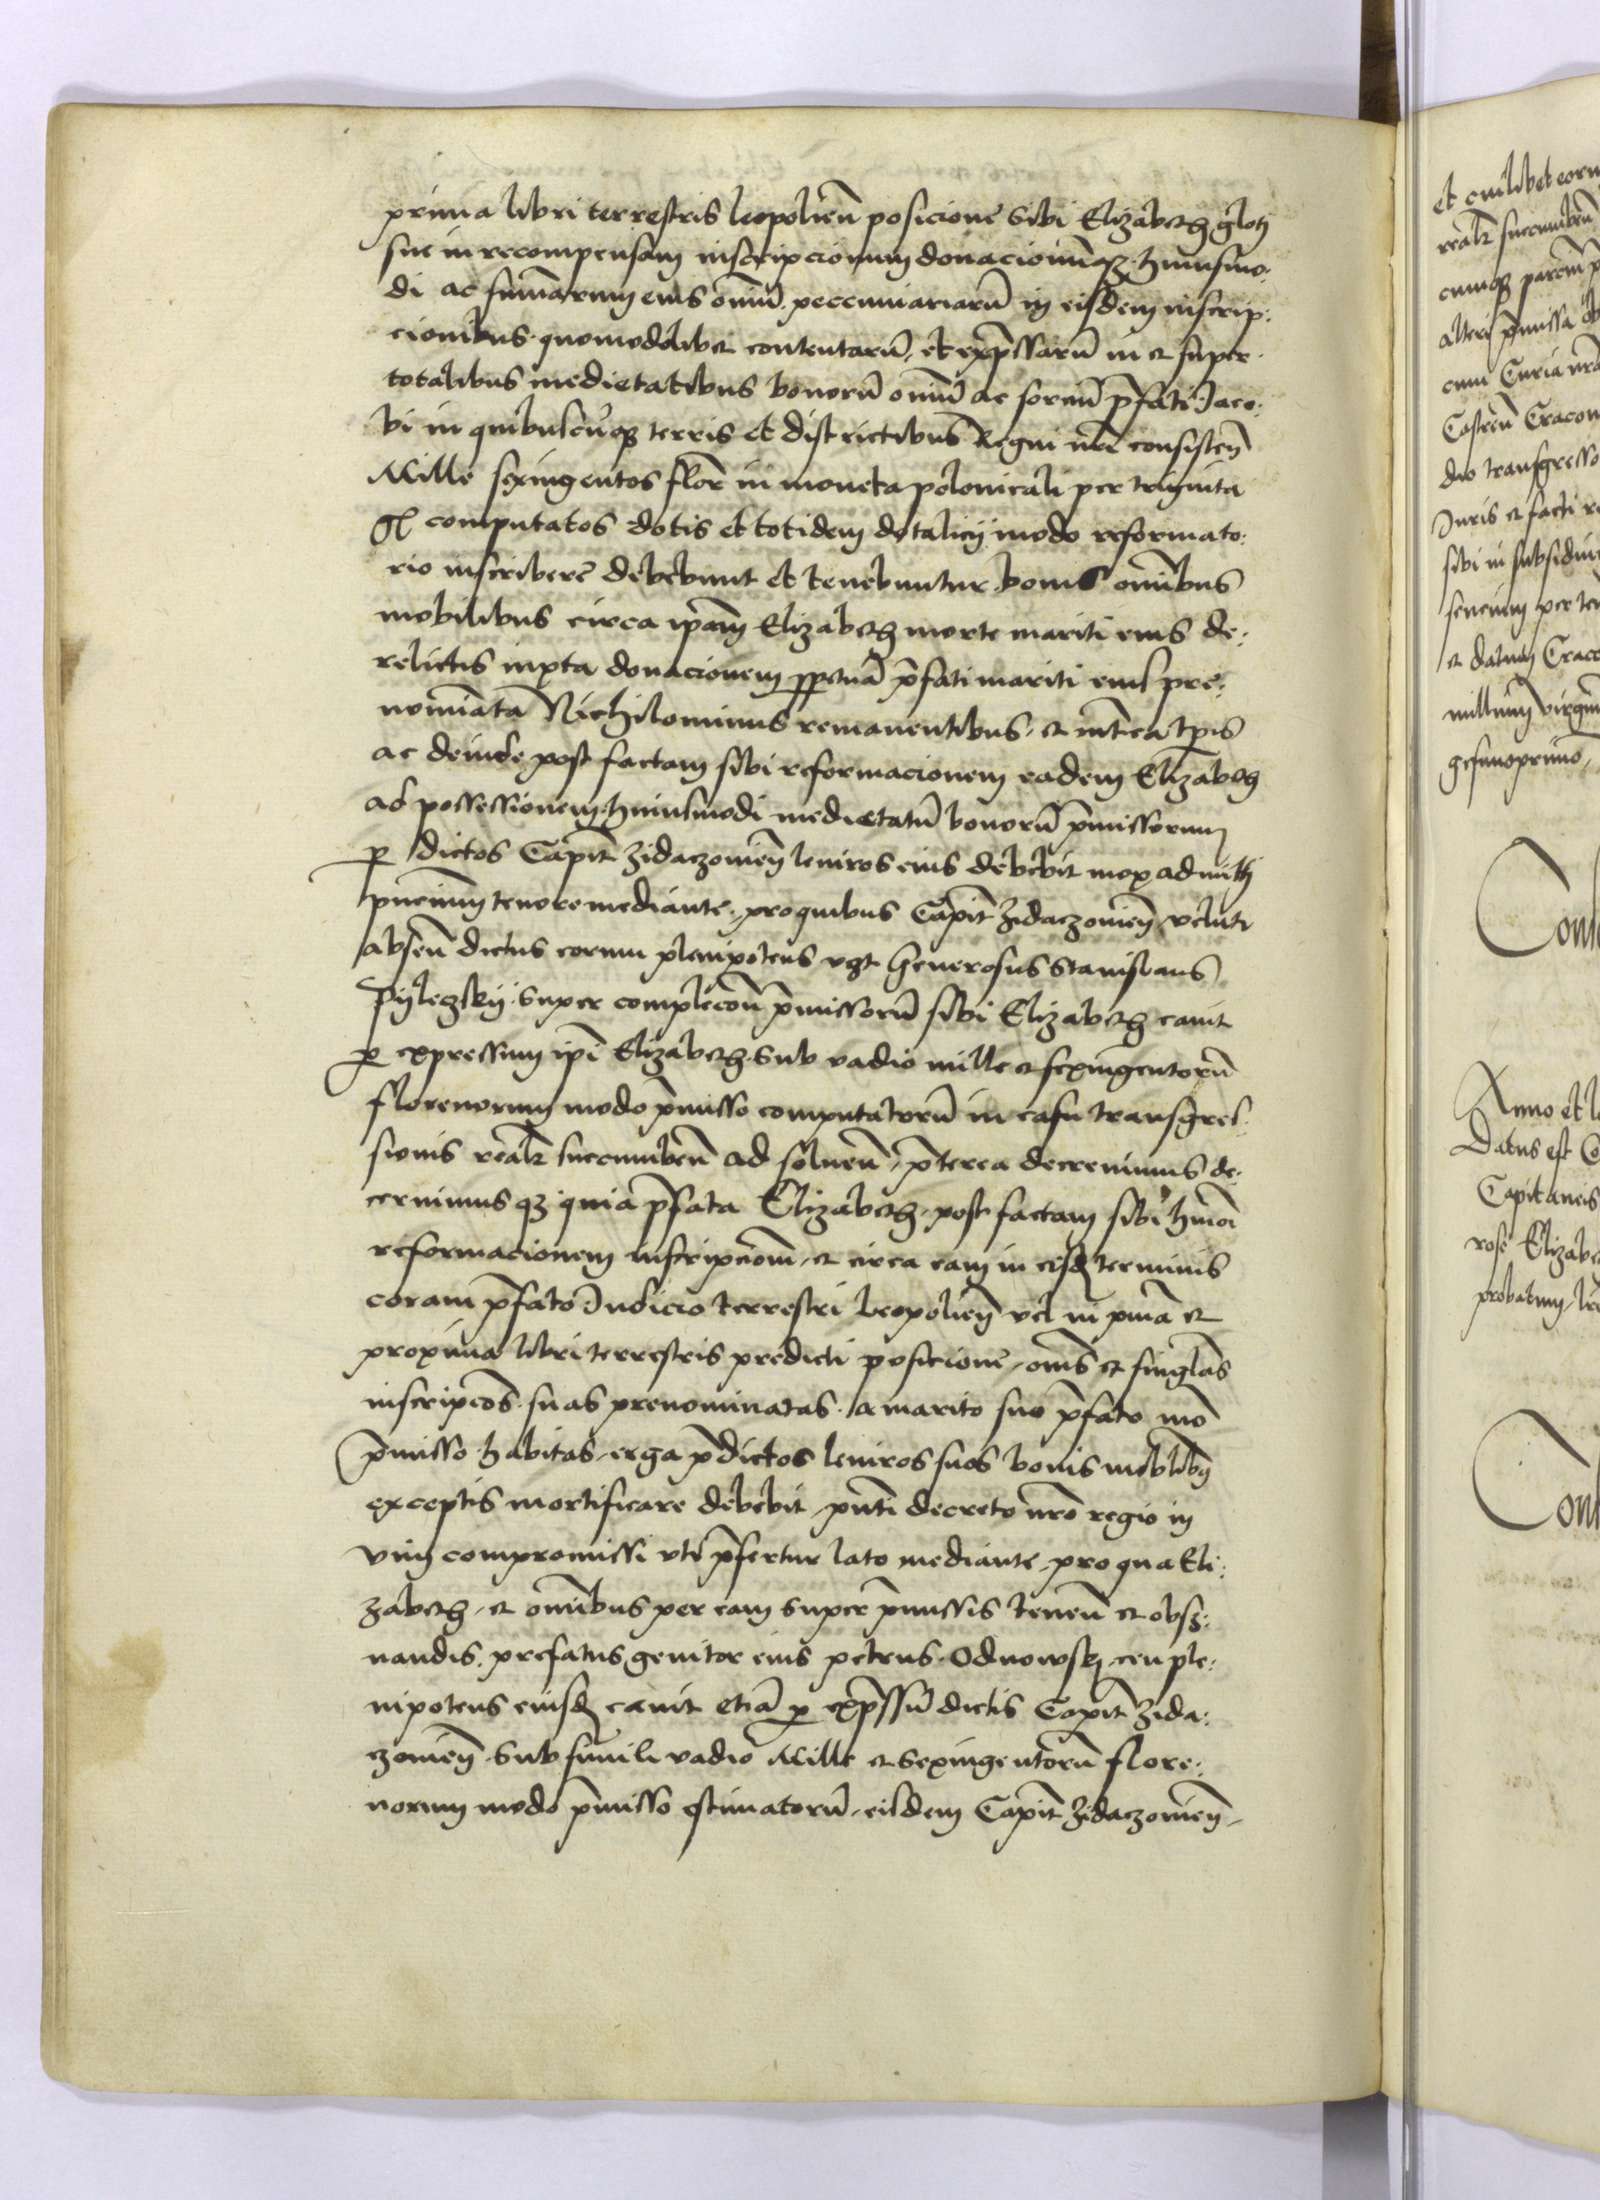 prima libri terrestris leopolien̄ posicione sibi Elizabeth gloti
sue in recompensam inscripcionum donacionumqȝ huiusmo:
di ac summarum eius om̄iu pecuniariarū in eisdem inscrip:
cionibus quomodolibet contentarū et exp̄ssarū in et super
totalibus medietatibus bonorū om̄iū ac sorciū p̄fati Jaco:
bi in quibuscūqȝ terris et districtibus Regni nr̄i consisten̄
Mille sexingentos flor̄ in moneta polonicali per triginta
gs computatos dotis et totidem dotalicij modo reformato:
rio inscribere debebunt et tenebuntur bonis om̄ibus
mobilibus circa ip̄am Elizabeth morte mariti eius de:
relictis iuxta donacionem ppetuā p̄fati mariti eius pre:
nominatā Nichilominus remanentibus et interea tp̄is
ac deinde post factam sibi reformacionem eadem Elizabeth
ad possessionem huiusmodi medietatū bonorū p̄missorum
p dictos Capit̄ Zidaczowien̄ leuiros eius debebit mox admitti
p̄ncium tenore mediante pro quibus Capit̄ Zidaczowien̄ veluti
absen̄ dictus eorum plenipotens vgt Generosus Stanislaus
Pyleczsky super complecōn p̄missorū sibi Elizabeth cauit
p expressum ip̄i Elizabeth sub vadio mille et sexingentorū
florenorum modo p̄misso computatorū in casu transgres:
sionis realr̄ succumben̄ ad soluen̄ p̄terea decreuimus de:
cernimusqȝ quia p̄fata Elizabeth post factam sibi hm̄oi
reformacionem inscripcionū et circa eam in eisd̄ terminis
coram p̄fato Judicio terrestri leopolien̄ vel in p̄ma et
proxima libri terrestris predicti posicione om̄s et singlas
inscripcōs suas prenominatas a marito suo p̄fato mō
p̄misso habitas erga p̄dictos leuiros suos bonis mobilib9
exceptis mortificare debebit p̄nti decreto nr̄o regio in
vim compromissi vti p̄fertur lato mediante pro qua Eli:
zabeth et om̄ibus per eam super p̄missis tenen̄ et obsȝ:
uandis prefatus genitor eius petrus Odnowskj ceu ple:
nipotens eiusd̄ cauit etiā p exp̄ssū dictis Capit̄ Zida:
czowien̄ sub simili vadio Mille et sexingentorū flore:
norum modo p̄misso estimatorū eisdem Capit̄ Zidaczowien̄
et cuilibet eoru
realr̄ succumben̄
cumqȝ parcium
alteri p̄missa
cum Curia nra
Castren̄ Cracou
dio transgresso
Juris et facti
sibi in subsidiu
senciun per te
et datum Crac
millimū virgin
gesimoprimo
Con
Anno et
Datus est
Capitaneis
rose Elizabe
probatum
Con